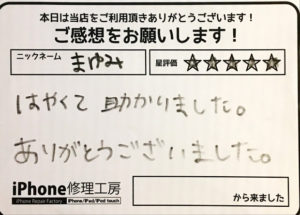 本日は当店をご利用頂きありがとうございます！
ご感想をお願いします！
ニックネーム まゆみ 星評価 ★★★★★
はやくて 助かりました。
ありがとうございました。
iPhone修理工房
iPhone Repair Factory iPhone/iPad/iPod touch
から来ました